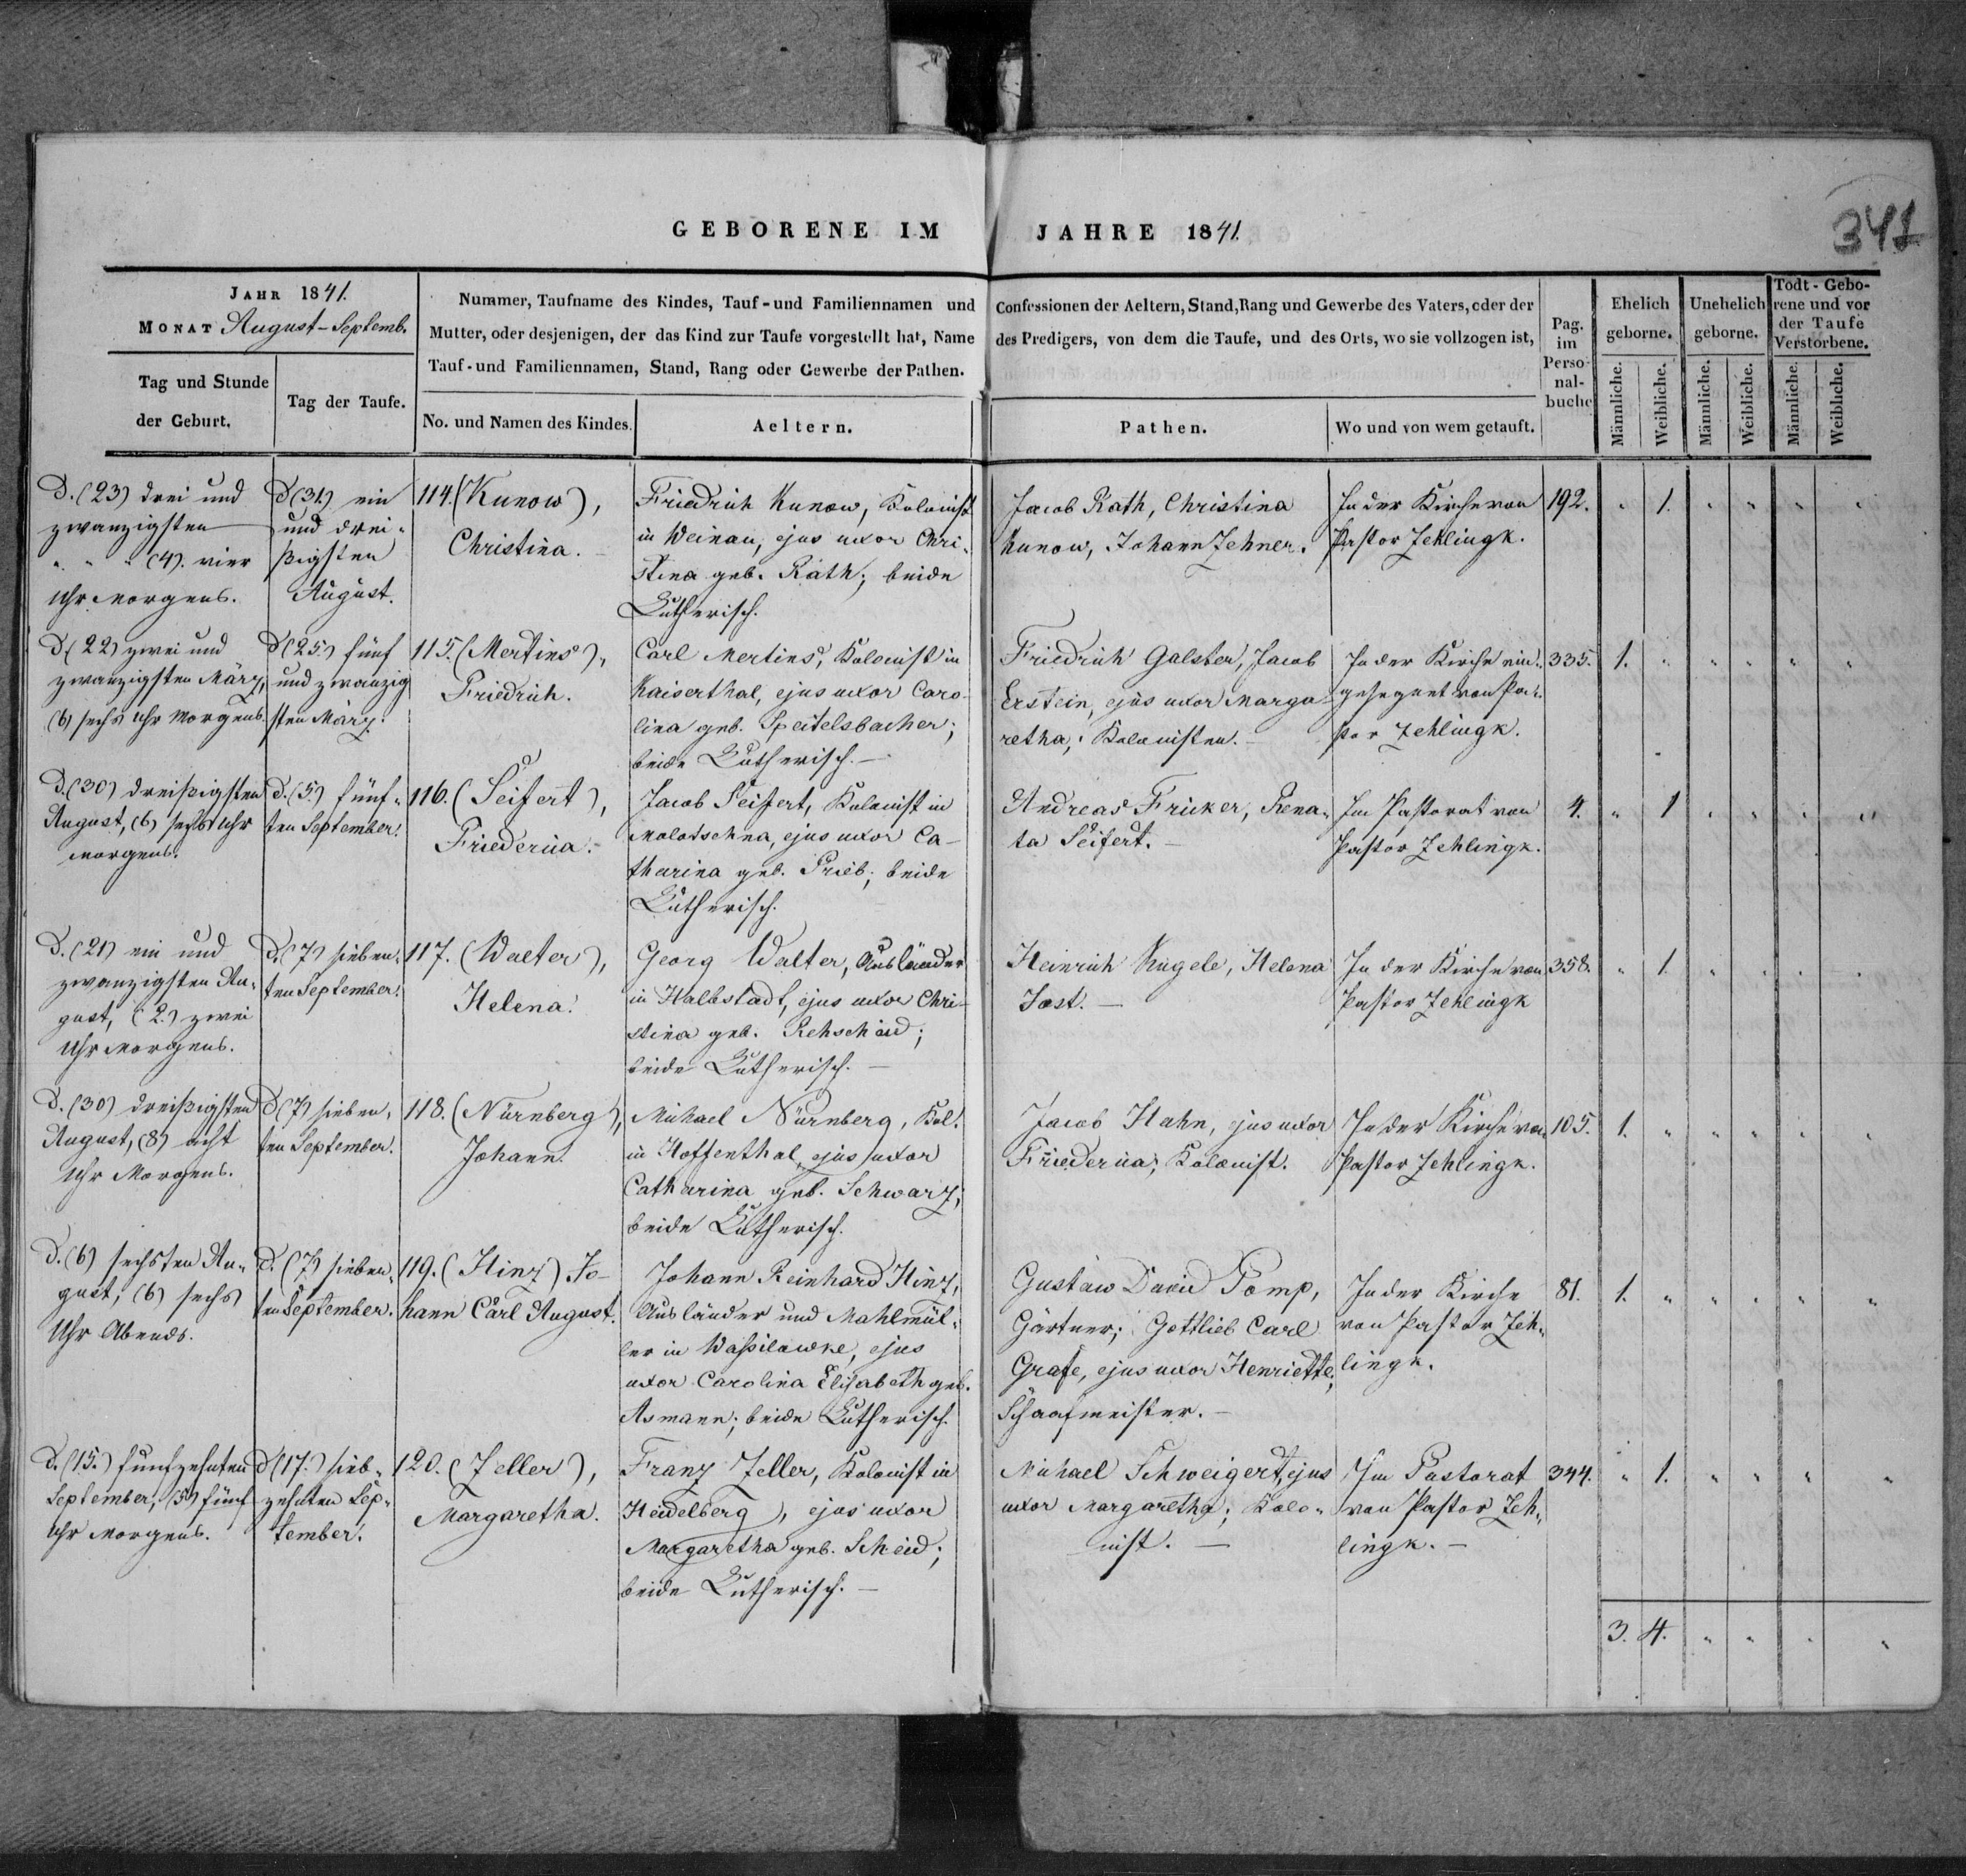 GEBORENE IM JAHRE 1841.
341
JAHR 1841.
MONAT August-Septemb.
Tag und Stunde
der Geburt.
Tag der Taufe.
Nummer, Taufname des Kindes, Tauf-und Familiennamen und
Mutter, oder desjenigen, der das Kind zur Taufe vorgestellt hat, Name
Tauf-und Familiennamen, Stand, Rang oder Gewerbe der Pathen.
No. und Namen des Kindes.
Aeltern.
Confessionen der Aeltern, Stand, Rang und Gewerbe des Vaters, oder der
des Predigers, von dem die Taufe, und des Orts, wo sie vollzogen ist,
Pathen.
Wo und von wem getauft.
Pag.
im
Perso-
nal-
buche
Ehelich
geborne.
Unehelich
geborne.
Todt-Gebo-
rene und vor
der Taufe
Verstorbene.
Männliche.
Weibliche.
Männliche.
Weibliche.
Männliche.
Weibliche.
D. (23) drei und
zwanzigsten
" " " (4). vier
Uhr Morgens.
D (31.) ein
und drei-
ßigsten
August.
114. (Kunow),
Christina.
Friedrich Kunow, Kolonist
in Weinau, ejus uxor Chri-
stina geb. Rath; beide
Lutherisch.
Jacob Rath, Christina
Kunow, Johann Zehner.
In der Kirche von
Pastor Zehlingk.
192. " 1. " " " "
D (22) zwei und
zwanzigsten März,
(6) sechs Uhr Morgens.
D (25.) fünf
und zwanzig
sten März.
115. (Mertins),
Friedrich.
Carl Mertins, Kolonist in
Kaiserthal, ejus uxor Caro-
lina geb. Speitelsbacher;
beide Lutherisch. —
Friedrich Galster, Jacob
Erstein, ejus uxor Marga-
retha; Kolonisten. —
In der Kirche ein-
gesegnet von Pa-
stor Zehlingk.
335. 1. " " " " "
D. (30) dreißigsten
August, (6) sechs Uhr
Morgens.
D. (5.) fünf-
ten September.
116. (Seifert),
Friederica. —
Jacob Seifert, Kolonist in
Molotschna, ejus uxor Ca-
tharina geb. Prieb; beide
Lutherisch.
Andreas Fricker, Rena-
ta Seifert. —
Im Pastorat von
Pastor Zehlingk.
4. " 1 " " " "
D. (21) ein und
zwanzigsten Au-
gust, (2.) zwei
Uhr Morgens.
D. (7) sieben-
ten September.
117. (Walter),
Helena.
Georg Walter, Ausländer
in Halbstadt, ejus uxor Chri-
stina geb. Rehscheid;
beide Lutherisch. —
Heinrich Kugele, Helena
Jost. —
In der Kirche von
Pastor Zehlingk
358. " 1. " " " "
D. (30) dreißigsten
August, (8) acht
Uhr Morgens.
D (7) sieben-
ten September.
118. (Nürnberg),
Johann.
Michael Nürnberg, Kol.
in Hoffenthal, ejus uxor
Catharina geb. Schwarz;
beide Lutherisch.
Jacob Hahn, ejus uxor
Friederica; Kolonist.
In der Kirche von
Pastor Zehlingk.
105. 1. " " " " "
D. (6) sechsten Au-
gust, (6) sechs
Uhr Abends.
D. (7) sieben-
ten September.
119. (Hinz) Jo-
hann Carl August.
Johann Reinhard Hinz,
Ausländer und Mahlmül-
ler in Waßilawke, ejus
uxor Carolina Elisabeth geb.
Asmann; beide Lutherisch.
Gustaw David Pomp,
Gärtner; Gottlieb Carl
Grafe, ejus uxor Henriette,
Schaafmeister. —
In der Kirche
von Pastor Zeh-
lingk.
81. 1. " " " " "
D. (15.) fünfzehnten
September, (5) fünf
Uhr Morgens.
D (17.) sieb-
zehnten Sep-
tember.
120. (Zeller),
Margaretha.
Franz Zeller, Kolonist in
Heidelberg, ejus uxor
Margaretha geb. Scheid;
beide Lutherisch. —
Michael Schweigert, ejus
uxor Margaretha; Kolo-
nist. —
Im Pastorat
von Pastor Zeh-
lingk. —
344. " 1. " " " "
3. 4. " " " "